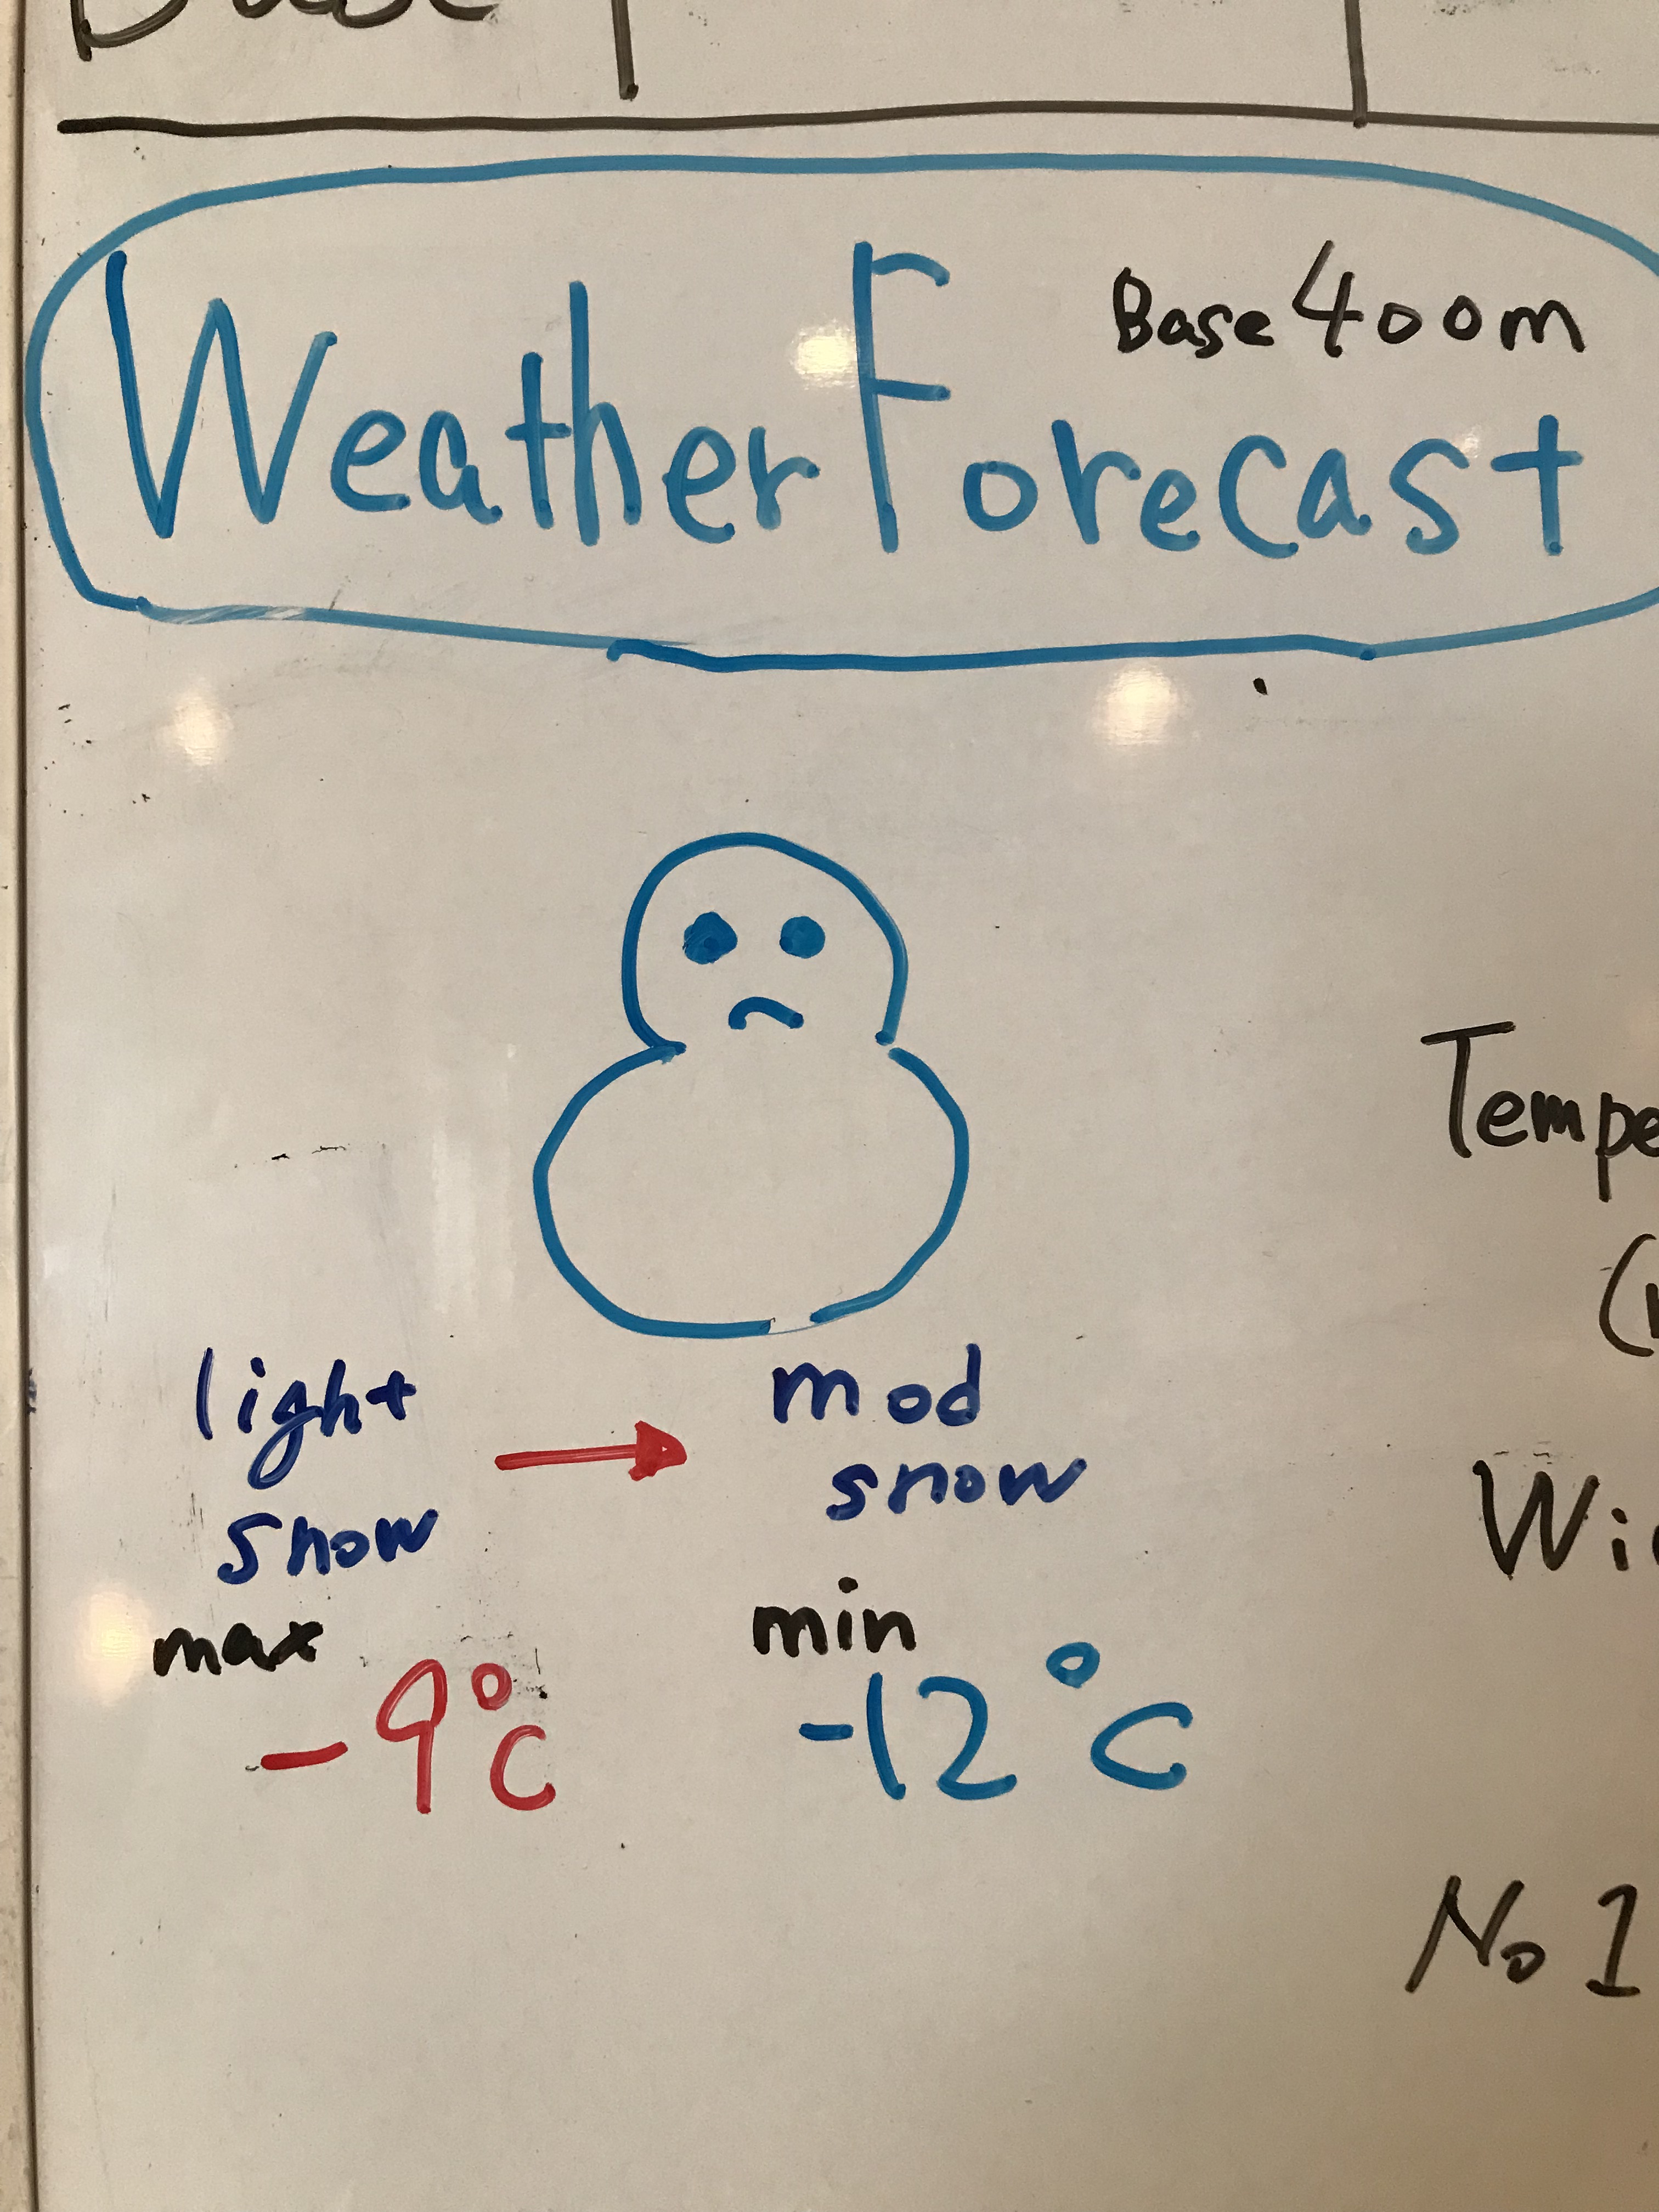 Base 400m
Weather Forecast
Tempe
light
snow
mod
snow
Wi
max
-9°C
min
-12°C
No 1